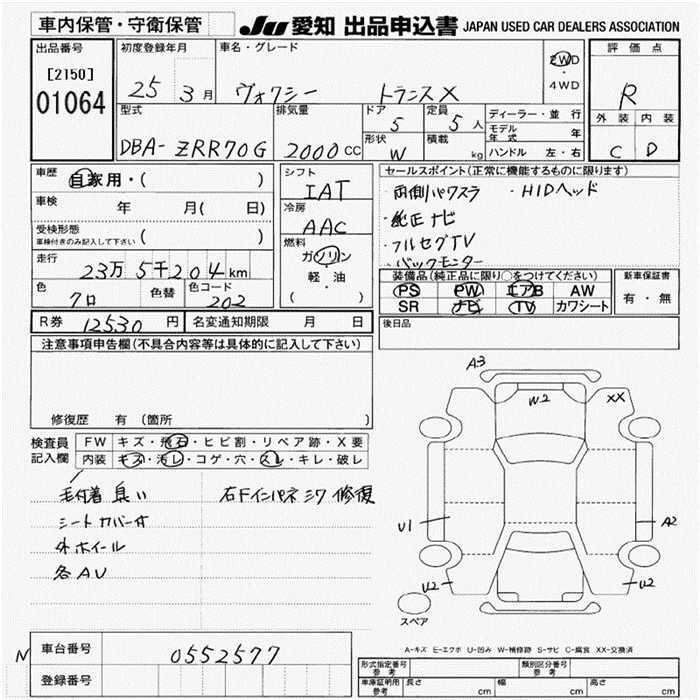 車内保管・守衛保管
JU 愛知 出品申込書 JAPAN USED CAR DEALERS ASSOCIATION
出品番号
[2150]
01064
初度登録年月
25 3月
車名・グレード
ヴォクシー トランスX
2WD
・
4WD
評価点
R
外装 内装
C D
型式
DBA- ZRR70G
排気量
2000 CC
ドア
5
定員
5 人
形状
W
積載
kg
ディーラー・並行
モデル年式 年
ハンドル 左・右
車歴
自家用・( )
車検 年 月( 日)
受検形態
車検付きのみ記入して下さい ( )
走行
23万5千204km
色
クロ
色替
色コード
202
シフト
IAT
冷房
AAC
燃料
ガソリン
・
軽・油
( )
セールスポイント(正常に機能するものに限ります)
・両側パワスラ ・HIDヘッド
・純正ナビ
・フルセグTV
・バックモニター
装備品(純正品に限り○をつけてください)
PS PW エアB AW
SR ナビ TV カワシート
新車保証書
有・無
R券 12530 円 名変通知期限 月 日
後日品
注意事項申告欄(不具合内容等は具体的に記入して下さい)
修復歴 有 (箇所 )
検査員記入欄
FW キズ・飛石・ヒビ割・リペア跡・X要
内装 キズ・汚レ・コゲ・穴・スレ・キレ・破レ
毛付着 臭い 右Fインパネ ミワ 修復
シートカバー付
外ホイール
各AV
A3
W2
XX
U1
A2
U2
U2
スペア
A-キズ E-エクボ U-凹み W-補修跡 S-サビ C-腐食 XX-交換済
N 車台番号 0552577
登録番号
形式指定番号 参考
類別区分番号 参考
車庫証明用 参考 長さ cm 幅 cm 高さ cm